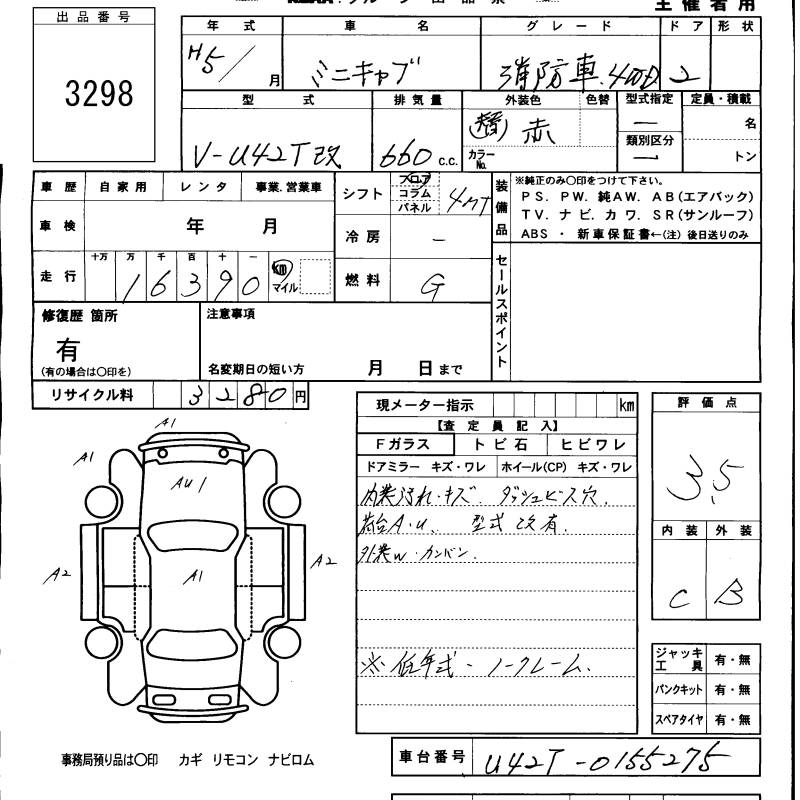 出品番号
3298
主催者用
年式 車名 グレード ドア 形状
H5/ 月 ミニキャブ 消防車.4WD 2
型式 排気量 外装色 色替 型式指定 定員・積載
V-U42T改 660 c.c. (替) 赤 カラーNo. — 類別区分 — 名 トン
車歴 自家用 レンタ 事業.営業車
シフト フロア コラム パネル 4MT
車検 年 月
冷房 —
走行 十万 万 千 百 十 一
1 6 3 9 0 km マイル
燃料 G
装備品
※純正のみ〇印をつけて下さい。
PS. PW. 純AW. AB(エアバック)
TV. ナビ. カワ. SR(サンルーフ)
ABS ・ 新車保証書←(注)後日送りのみ
セールスポイント
修復歴 箇所
有
(有の場合は〇印を)
注意事項
名変期日の短い方 月 日まで
リサイクル料 3 2 8 0 円
現メーター指示 km
【査定員記入】
Fガラス トビ石 ヒビワレ
ドアミラー キズ・ワレ ホイール(CP) キズ・ワレ
内装汚れ・キズ. ダッシュビス穴.
荷台A・U. 型式 改有.
外装W・カンバン.
※低年式-ノークレーム.
評価点
3.5
内装 外装
C B
A1
A1
A1
AU1
A1
A2
A2
ジャッキ工具 有・無
パンクキット 有・無
スペアタイヤ 有・無
事務局預り品は〇印 カギ リモコン ナビロム
車台番号 U42T-0155275